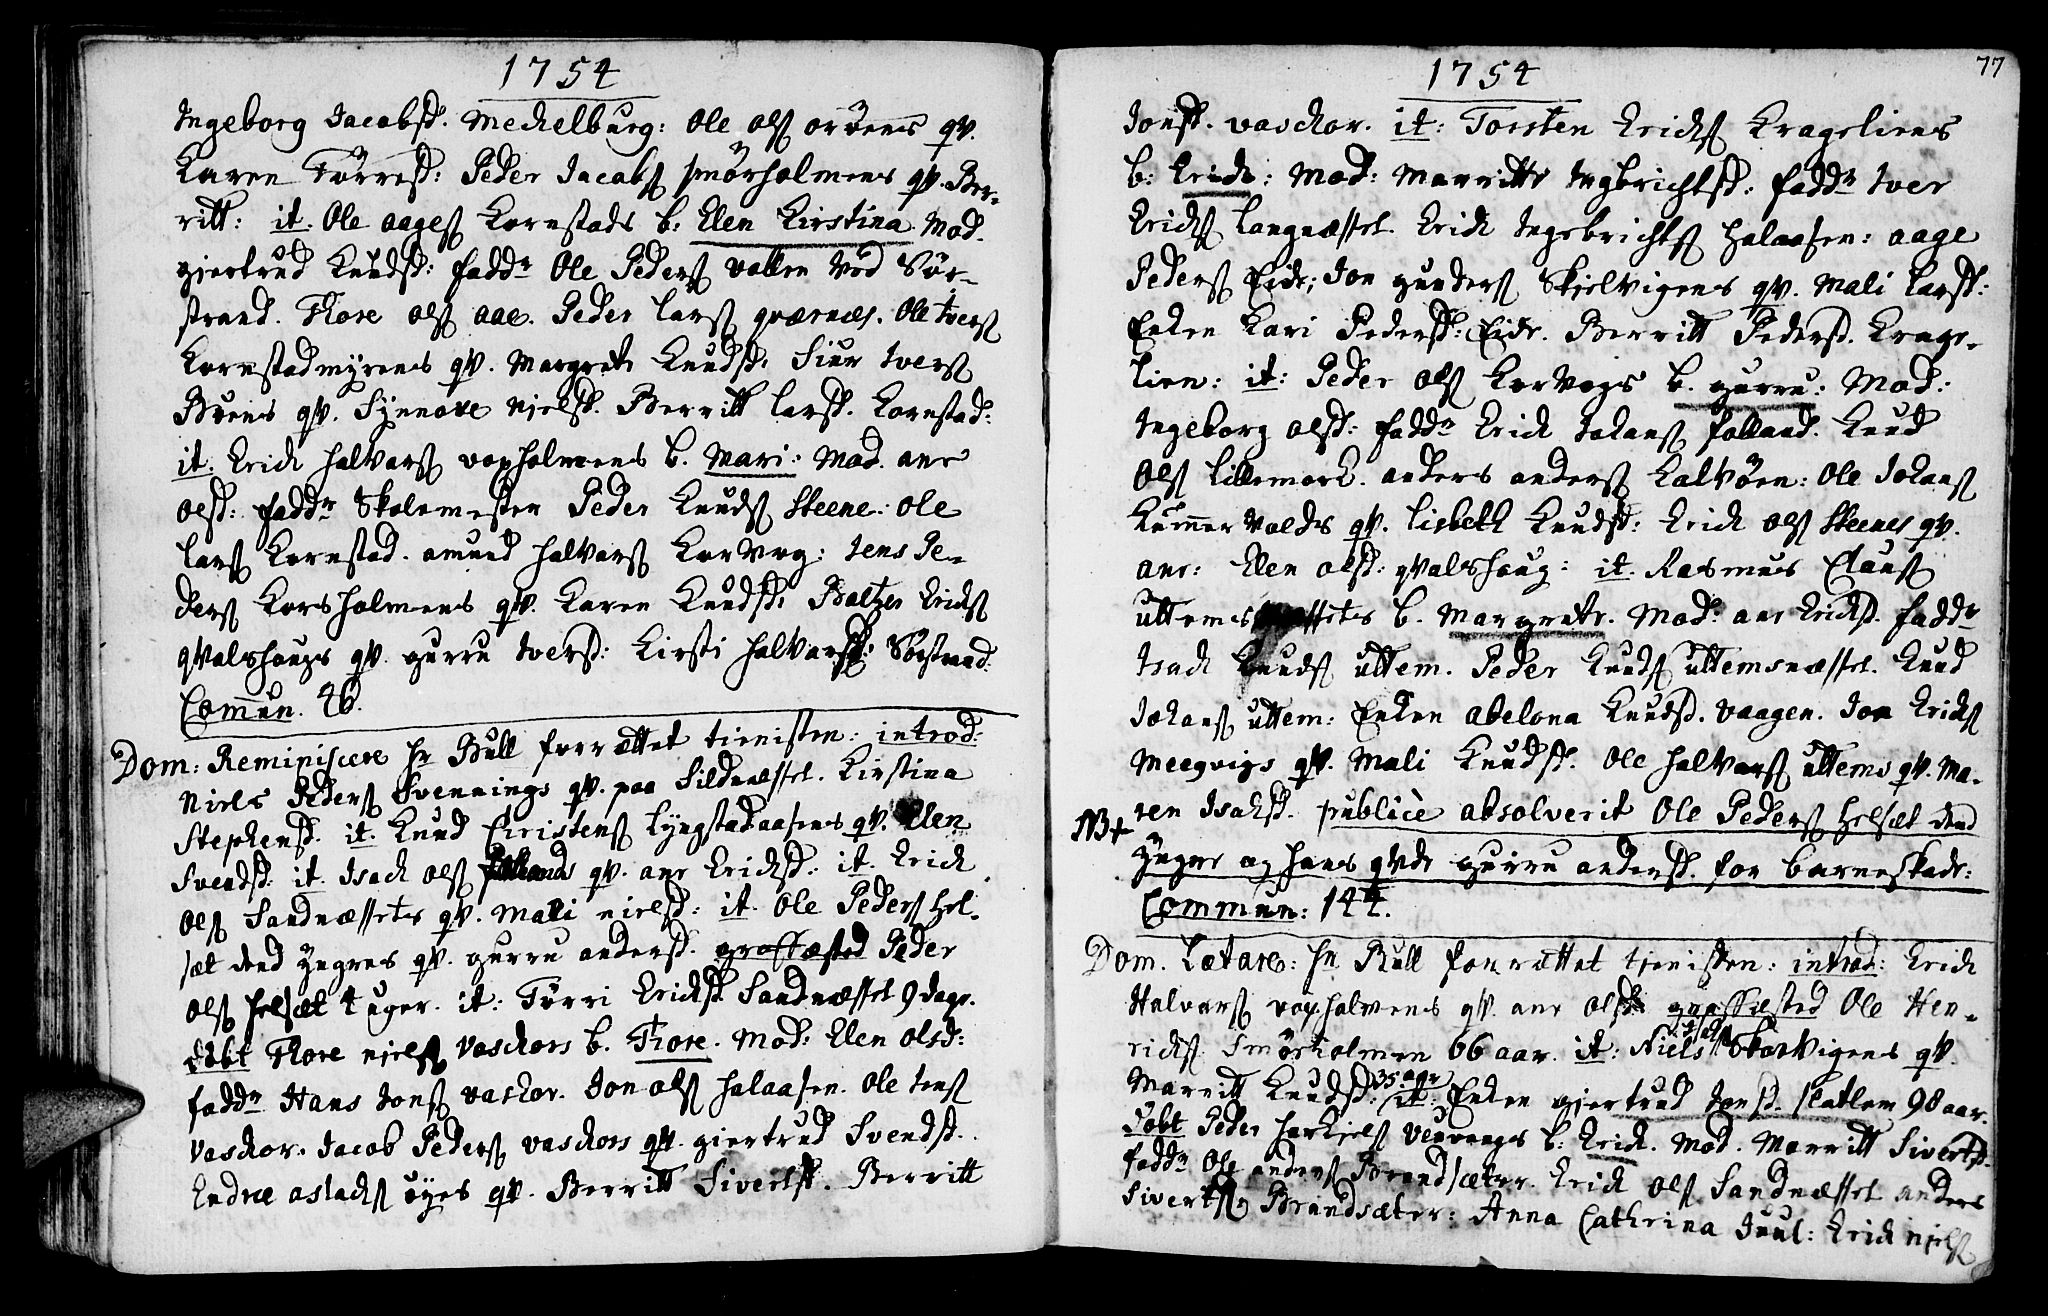 1754
Ingeborg Jacobsd. Mechelburg: Ole Ols orøens qv.
Karen Tørresd: Peder Jacobs smörholmens qv. Ber-
ritt: it. Ole aages Kornstads b. Elen Kirstina Mod.
giertrud Knudsd: fadd.r Ole Peders vollen ved Sør-
strand. Thore ols aae. Peder Lars qværnæs. Ole Ivers
Kornstadmyrens qv. Margrete Knudsd: Siur Ivers
Bøens qv. Synnove nielsd. Berritt larsd. Kornstad:
it. Erich halvars vopholmens b. Mari: Mod. ane
olsd: fadd.r Skolemesteren Peder Knuds Steene: ole
lars Kornstad. amund halvars Korvog: Jens Pe-
ders Korsholmens qv. Karen Knudsd: Baltzer Erichs
qvalshougs qv. gurru Iversd: Kirsti halvarsd: Sørstrad:
Commun. 46.
Dom: Reminiscere hr Bull forrættet tienisten: introd:
Niels Peders Svennings qv. paa Sildnæsset. Kirstina
Stephensd. it. Knud Christens Lyngstadaasens qv. Elen
Svendsd. it. Isach ols follands qv. ane Erichsd: it. Erich
ols Sandnæssets qv. Mali nielsd: it. Ole Peders Hel-
sæt dend yngres qv. gurru andersd. graffæsted Peder
ols helsæt 4 uger. it: Tørri Erichsd Sandnæsset 9 dage.
døbt Thore niels Vaschors b. Thore. Mod: Elen olsd:
fadd.r Hans Jons vaskor. Jon ols halaasen. Ole Jens
Vaschor. Jacob Peders vaschors qv. giertrud Svendsd.
Endræ aslachs øyes qv. Berritt Sivertsd. Berritt
1754
77
Jonsd. vaschor. it: Torsten Erichs Krageliens
b: Erich: Mod: Marritte Ingbrichtsd: fadd.r Iver
Erichs langnæsset. Erich Ingebrichts halaasen: aage
Peders Eide; Jon gunders Skjelvigens qv. Mali larsd:
Enken Kari Pedersd: Eide. Berritt Pedersd. Krage-
lien: it: Peder ols Korvogs b. gurru: Mod:
Ingeborg olsd: fadd.r Erich Johans folland. Knud
Ols lillemork. anders anders Kalvøen: Ole Johans
Kummervolds qv. lisbeth Knudsd: Erich ols Steenes qv.
ane: Elen olsd: qvalshoug: it. Rasmus Claus
uttems næssets b. Margrete. Mod: ane Erichsd. fadd.r
Isach Knuds uttem. Peder Knuds uttemsnæsset. Knud
Johans uttem: Enken abelona Knudsd. vaagen. Jon Erichs
Meegvigs qv. Mali Knudsd. Ole halvars uttems qv. Ma-
ren Isachsd. publicè absolverit Ole Peders helsæt dend
NB+
yngre og hans qvde gurru andersd. for barneskade:
Commun: 144.
Dom. Lætare: hr Bull forrættet tienisten: introd: Erich
Halvars vopholmens qv. ane olsd: graffæsted Ole Hen-
richs Smørholmen 66 aar. it: Niels Skorvigens qv.
Marritt Knudsd: 35 aar it: Enken giertrud Jonsd. slatlem 98 aar.
Døbt Peder Torkiels Veuvogs b: Erich. Mod. Marritt Sivertsd.
fadd.r Ole anders Brandsæter. Erich ols Sandnæsset anders
Siverts Brandsæter: Anna Cathrina Juul: Erich niels